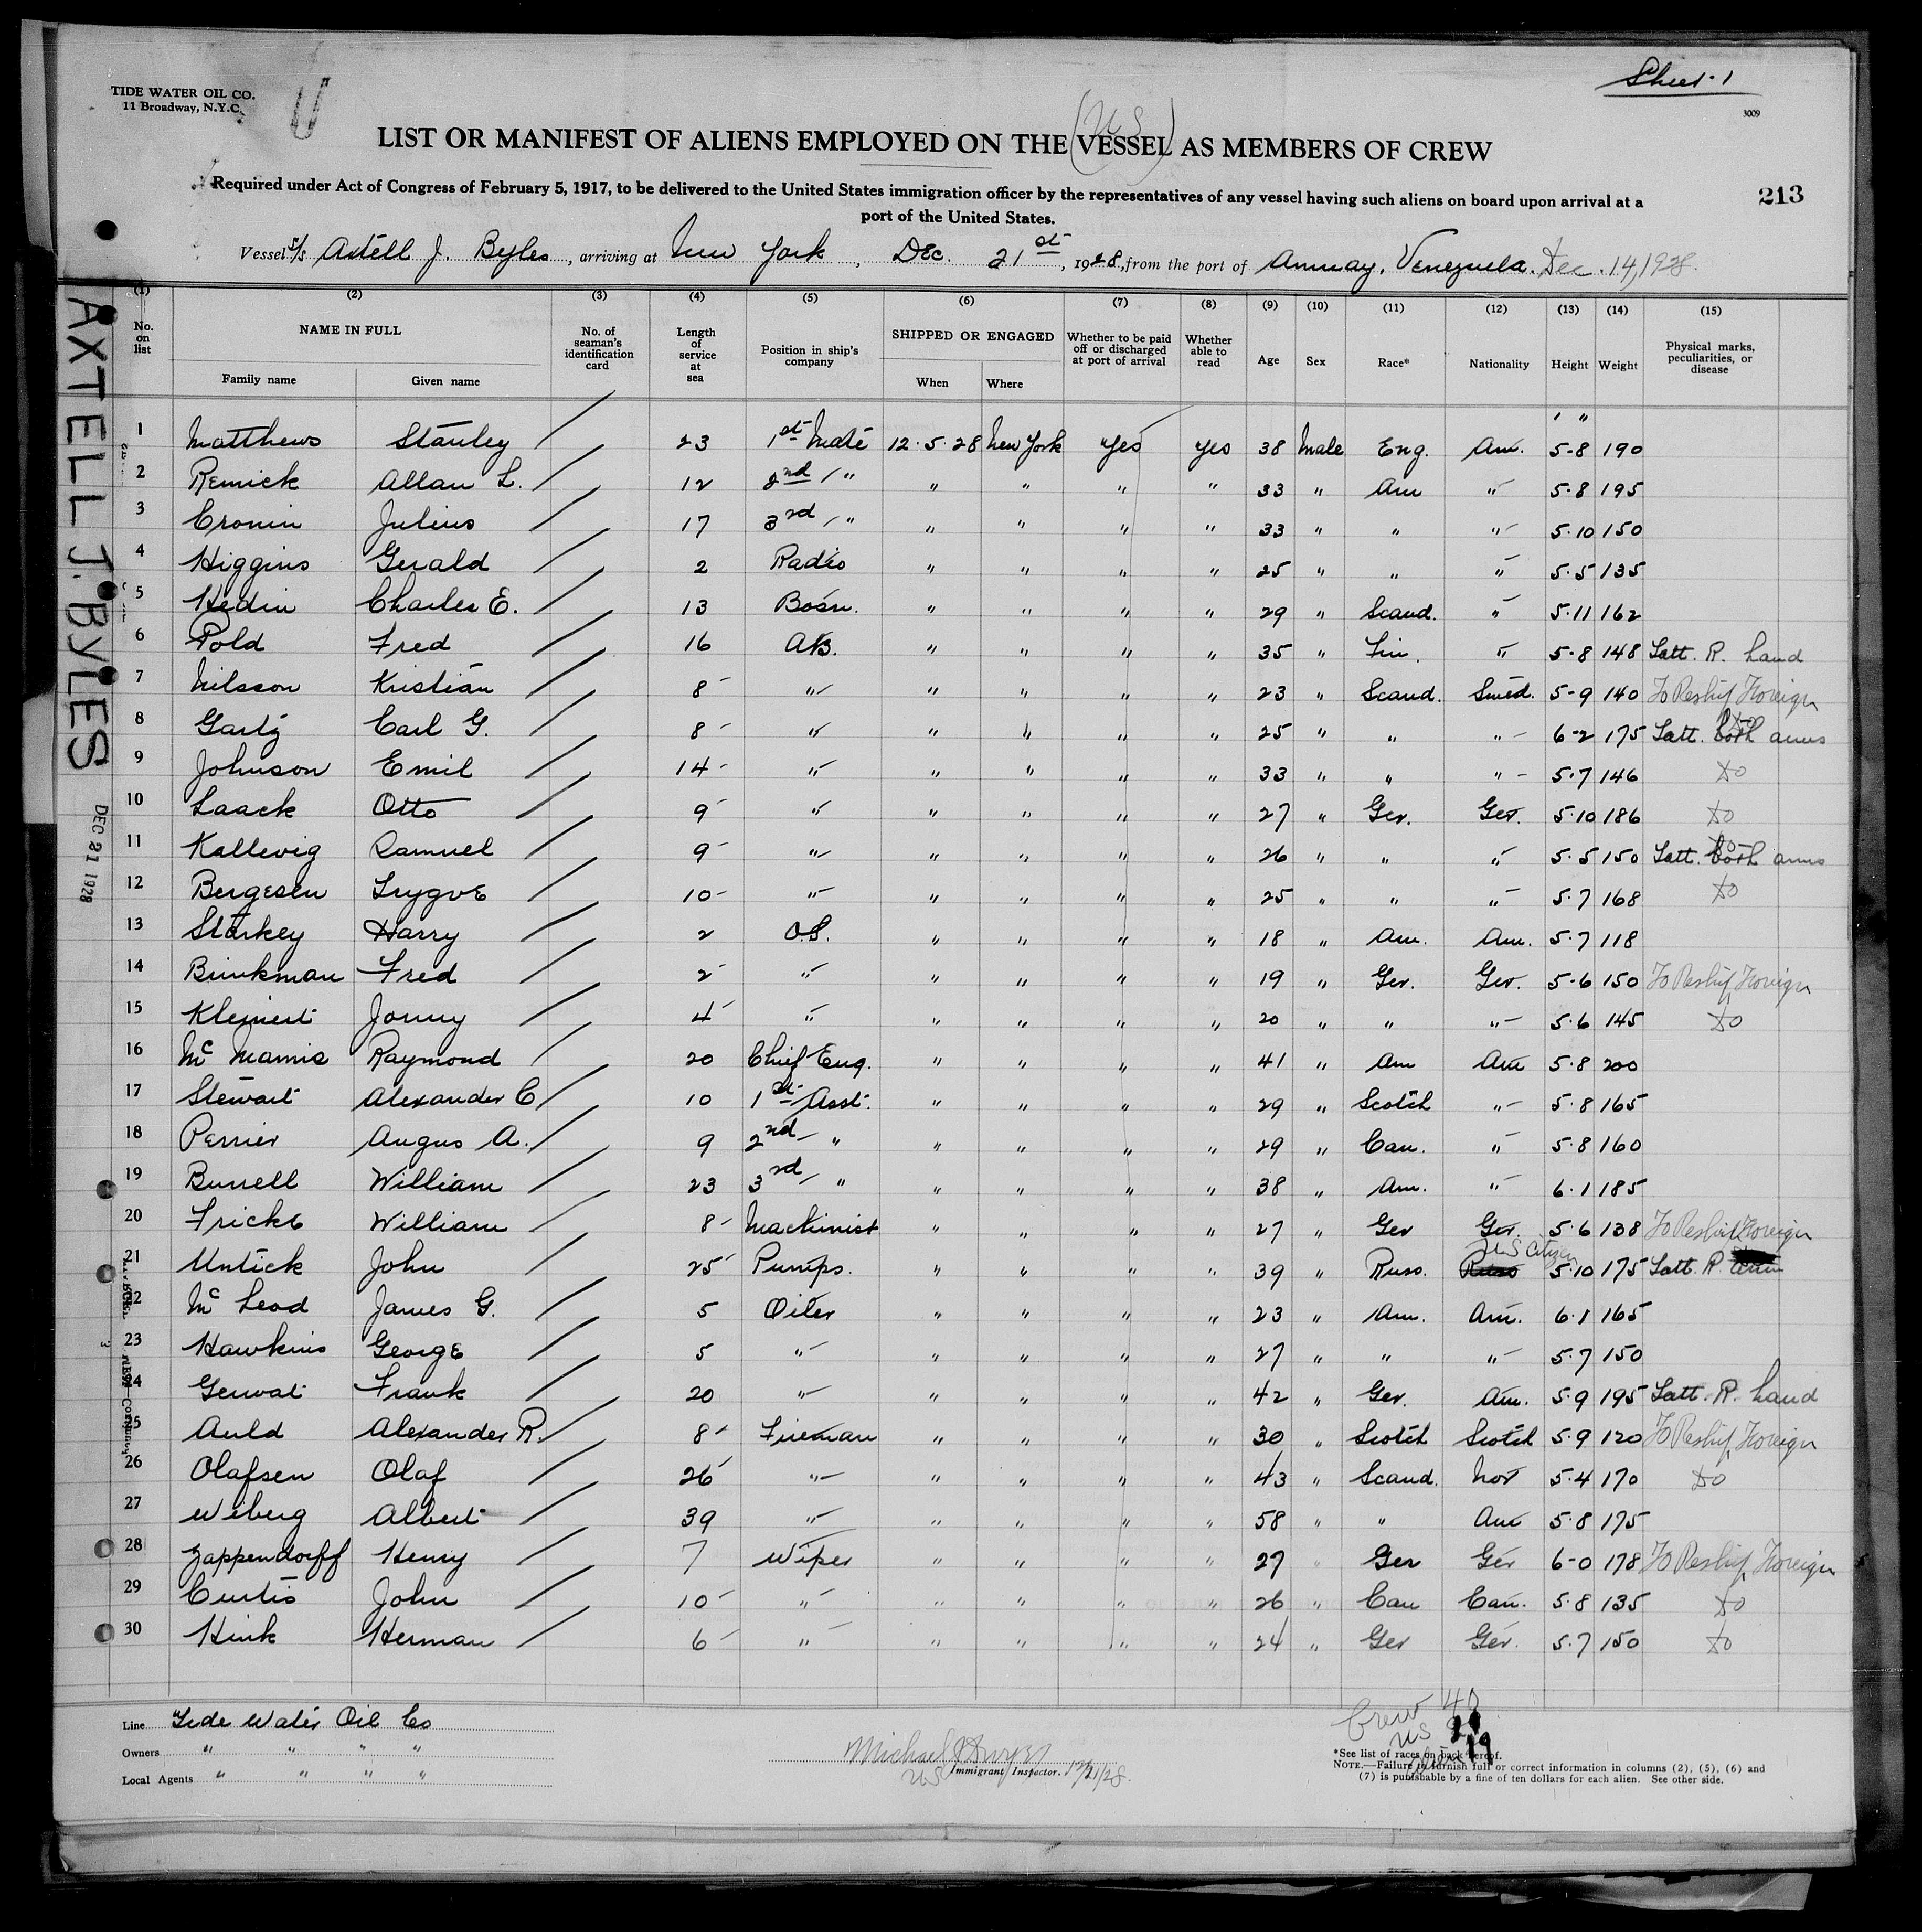 Sheet-1
TIDE WATER OIL CO.
11 Broadway, N.Y.C.
3009
(US)
LIST OR MANIFEST OF ALIENS EMPLOYED ON THE VESSEL AS MEMBERS OF CREW
Required under Act of Congress of February 5, 1917, to be delivered to the United States immigration officer by the representatives of any vessel having such aliens on board upon arrival at a
port of the United States.
213
Vessel S/S Axtell J. Byles, arriving at New York, Dec. 21st, 1928, from the port of Amuay, Venezuela. Dec. 14, 1928.
AXTELL J. BYLES
DEC 21 1928
(1) (2) (3) (4) (5) (6) (7) (8) (9) (10) (11) (12) (13) (14) (15)
No. on list NAME IN FULL Family name Given name No. of seaman's identification card Length of service at sea Position in ship's company SHIPPED OR ENGAGED When Where Whether to be paid off or discharged at port of arrival Whether able to read Age Sex Race* Nationality Height Weight Physical marks, peculiarities, or disease
1 Matthews Stanley 23 1st Mate 12.5.28 New York Yes Yes 38 Male Eng. Am. 5-8 190
2 Remick Allan L. 12 2nd " " " " " 33 " Am " 5.8 195
3 Cronin Julius 17 3rd " " " " " 33 " " " 5.10 150
4 Higgins Gerald 2 Radio " " " " 25 " " " 5.5 135
5 Hedin Charles E. 13 Bosn. " " " " 29 " Scand. " 5.11 162
6 Pold Fred 16 AB. " " " " 35 " Fin. " 5-8 148 Tatt. R. hand
7 Nilsson Kristian 8 " " " " " 23 " Scand. Swed. 5-9 140 To Reship Foreign
8 Gartz Carl G. 8 " " " " " 25 " " " 6-2 175 Tatt. both arms Do
9 Johnson Emil 14 " " " " " 33 " " " 5.7 146 Do
10 Laack Otto 9 " " " " " 27 " Ger. Ger. 5.10 186 Do
11 Kallevig Samuel 9 " " " " " 26 " " " 5.5 150 Tatt. both arms Do
12 Bergesen Trygve 10 " " " " " 25 " " " 5.7 168 Do
13 Starkey Harry 2 O.S. " " " " 18 " Am. Am. 5.7 118
14 Brinkman Fred 2 " " " " " 19 " Ger. Ger. 5-6 150 To Reship Foreign
15 Kleinert Jonny 4 " " " " " 20 " " " 5.6 145 Do
16 Mc Mamis Raymond 20 Chief Eng. " " " " 41 " Am Am 5.8 200
17 Stewart Alexander C 10 1st Asst. " " " " 29 " Scotch " 5.8 165
18 Perrier Angus A. 9 2nd " " " " " 29 " Can. " 5.8 160
19 Burrell William 23 3rd " " " " " 38 " Am. " 6.1 185
20 Fricke William 8 Machinist " " " " 27 " Ger Ger. 5.6 138 To Reship Foreign
21 Untick John 25 Pumps. " " " " 39 " Russ. Russ US Citizen 5.10 175 Tatt. R. arm
22 Mc Leod James G. 5 Oiler " " " " 23 " Am. Am. 6.1 165
23 Hawkins George 5 " " " " " 27 " " " 5.7 150
24 Gerwat Frank 20 " " " " " 42 " Ger. Am. 5.9 195 Tatt. R. hand
25 Auld Alexander R. 8 Fireman " " " " 30 " Scotch Scotch 5.9 120 To Reship Foreign
26 Olafsen Olaf 26 " " " " " 43 " Scand. Nor 5.4 170 Do
27 Wiberg Albert 39 " " " " " 58 " " Am 5.8 175
28 Zappendorff Henry 7 Wiper " " " " 27 " Ger Ger 6-0 178 To Reship Foreign
29 Curtis John 10 " " " " " 26 " Can Can. 5.8 135 Do
30 Hink Herman 6 " " " " " 24 " Ger Ger. 5.7 150 Do
Line Tide Water Oil Co
Owners " " " "
Local Agents " " " "
Immigrant Inspector. 12/21/28.
US
Crew 40
US 21
19
*See list of races on back hereof.
NOTE.—Failure to furnish full or correct information in columns (2), (5), (6) and
(7) is punishable by a fine of ten dollars for each alien. See other side.